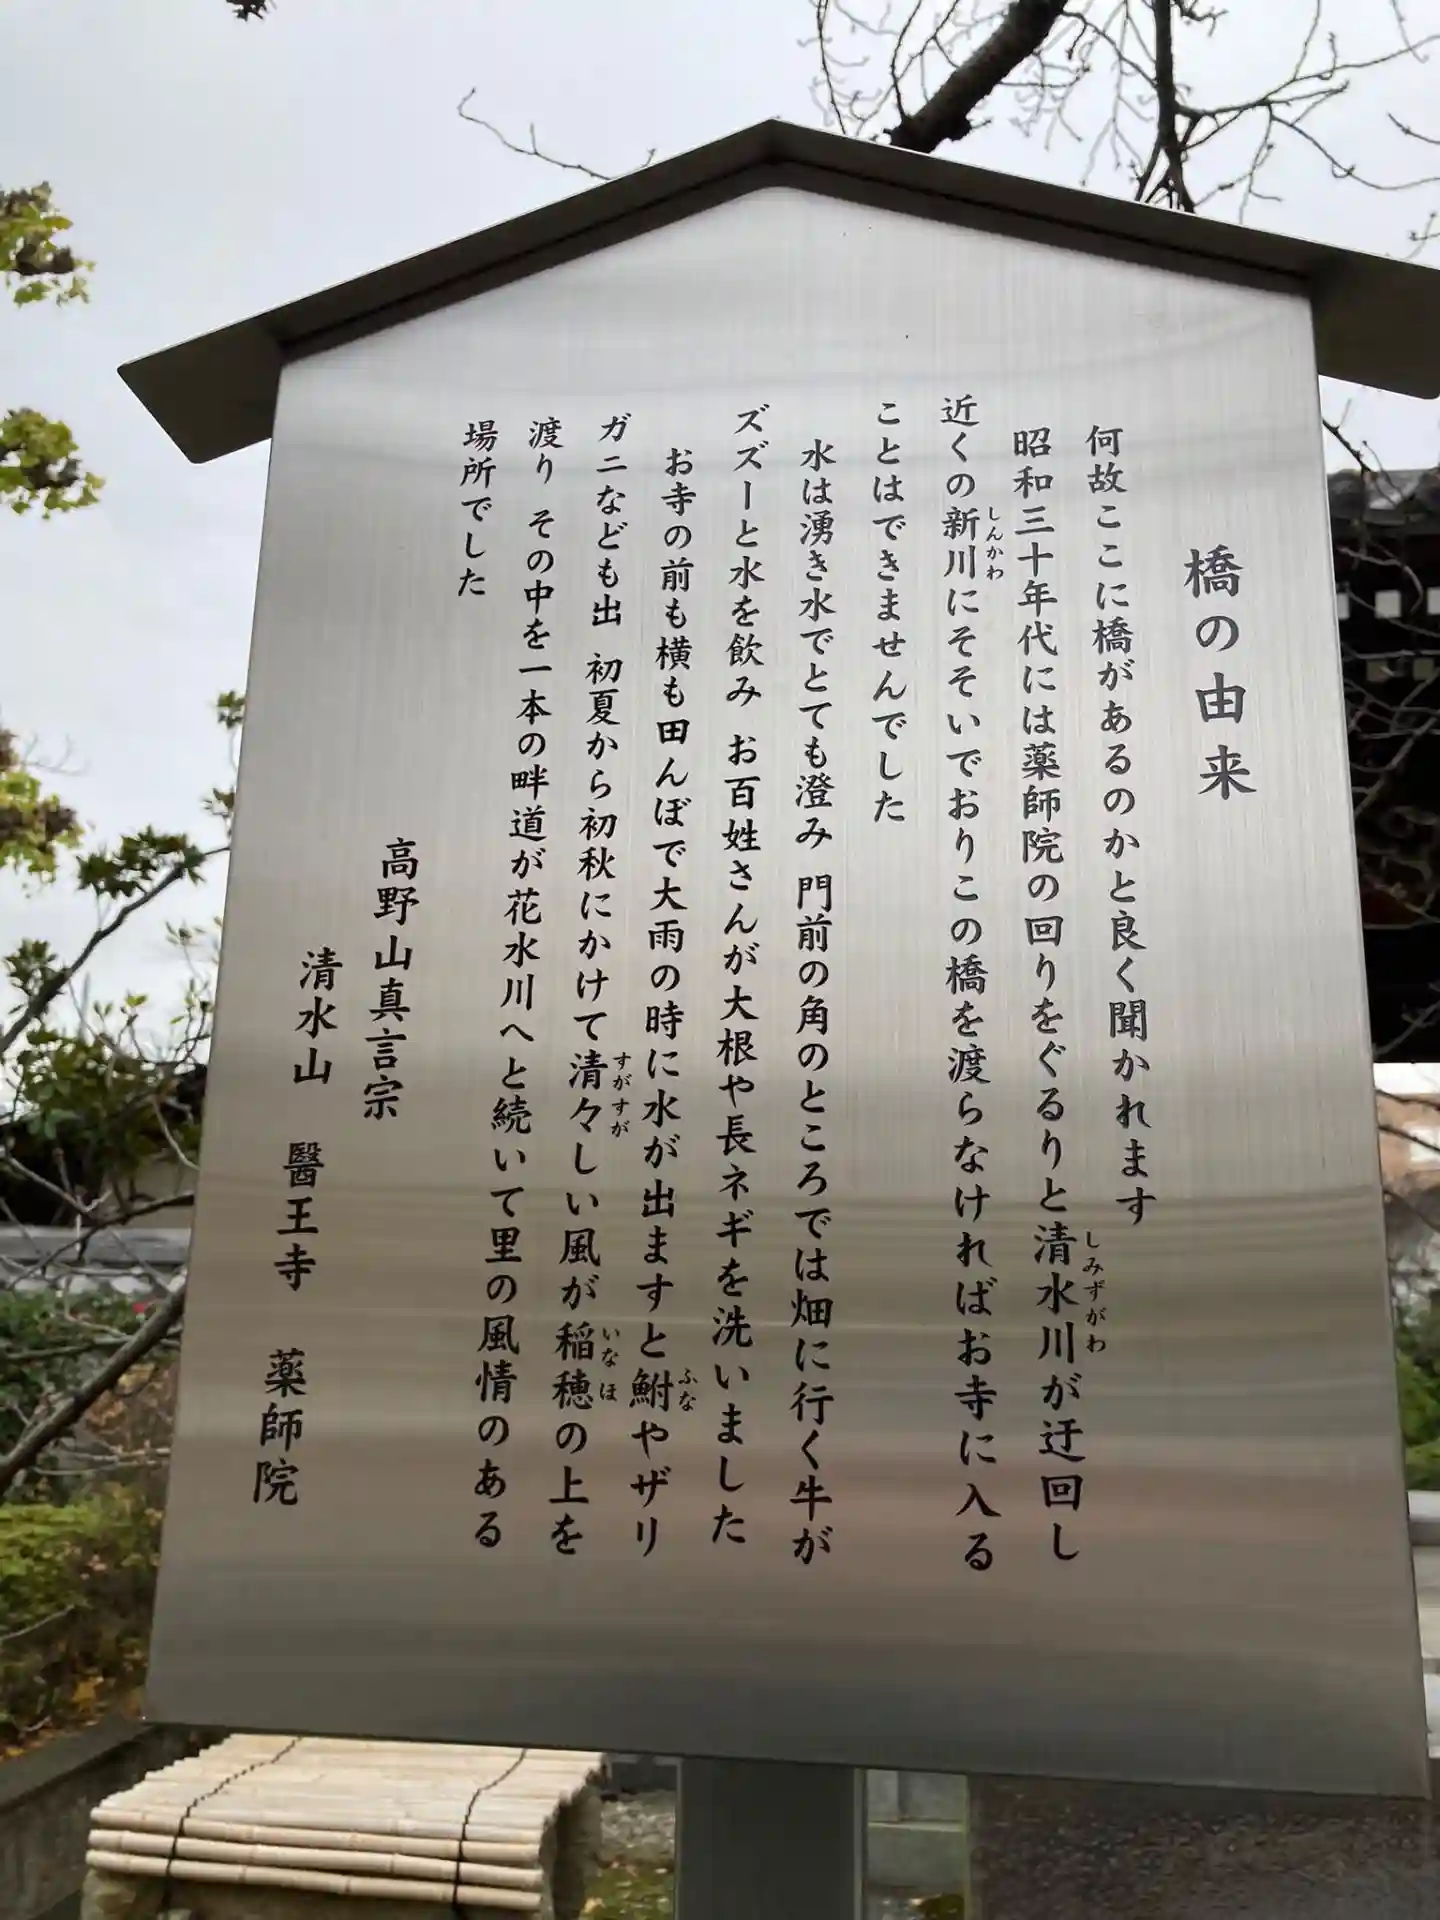 橋の由来
何故ここに橋があるのかと良く聞かれます
昭和三十年代には薬師院の回りをぐるりと清水川が迂回し
しみずがわ
近くの新川にそそいでおりこの橋を渡らなければお寺に入る
しんかわ
ことはできませんでした
水は湧き水でとても澄み 門前の角のところでは畑に行く牛が
ズズーと水を飲み お百姓さんが大根や長ネギを洗いました
お寺の前も横も田んぼで大雨の時に水が出ますと鮒やザリ
ふな
ガニなども出 初夏から初秋にかけて清々しい風が稲穂の上を
すがすが
いなほ
渡り その中を一本の畔道が花水川へと続いて里の風情のある
場所でした
高野山真言宗
清水山 醫王寺 薬師院